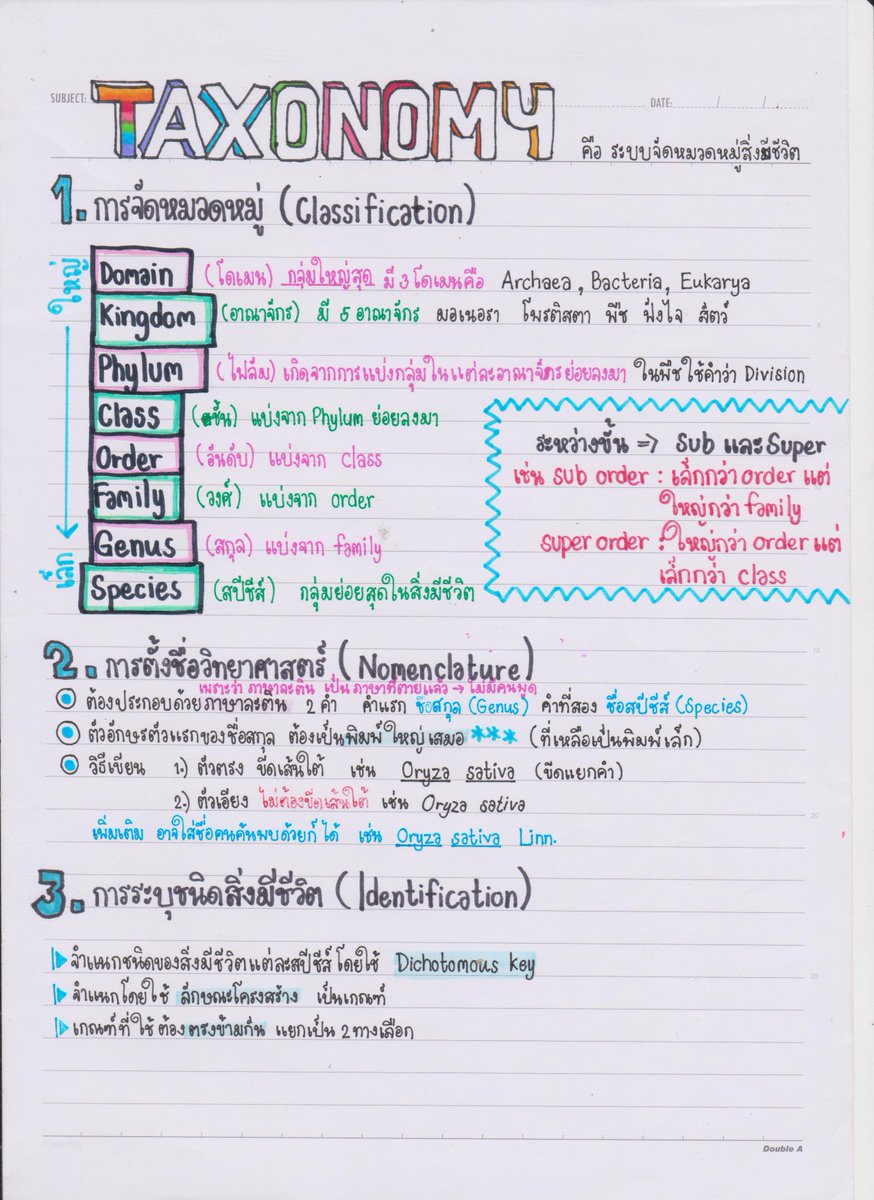 SUBJECT:
TAXONOMY
NO:
DATE: / /
คือ ระบบจัดหมวดหมู่สิ่งมีชีวิต
1. การจัดหมวดหมู่ (Classification)
ใหญ่
Domain (โดเมน) กลุ่มใหญ่สุด มี 3 โดเมนคือ Archaea, Bacteria, Eukarya
Kingdom (อาณาจักร) มี 5 อาณาจักร มอเนอรา โพรติสตา พืช ฟังไจ สัตว์
Phylum (ไฟลัม) เกิดจากการแบ่งกลุ่มในแต่ละอาณาจักรย่อยลงมา ในพืชใช้คำว่า Division
Class (ชั้น) แบ่งจาก Phylum ย่อยลงมา
Order (อันดับ) แบ่งจาก class
Family (วงศ์) แบ่งจาก order
Genus (สกุล) แบ่งจาก family
Species (สปีชีส์) กลุ่มย่อยสุดในสิ่งมีชีวิต
เล็ก
ระหว่างขั้น => Sub และ Super
เช่น sub order : เล็กกว่า order แต่
ใหญ่กว่า family
super order : ใหญ่กว่า order แต่
เล็กกว่า class
2. การตั้งชื่อวิทยาศาสตร์ (Nomenclature)
เพราะว่า ภาษาละติน เป็น ภาษาที่ตายแล้ว → ไม่มีคนพูด
ต้องประกอบด้วยภาษาละติน 2 คำ คำแรก ชื่อสกุล (Genus) คำที่สอง ชื่อสปีชีส์ (Species)
ตัวอักษรตัวแรกของชื่อสกุล ต้องเป็นพิมพ์ใหญ่เสมอ *** (ที่เหลือเป็นพิมพ์เล็ก)
วิธีเขียน 1.) ตัวตรง ขีดเส้นใต้ เช่น Oryza sativa (ขีดแยกคำ)
2.) ตัวเอียง ไม่ต้องขีดเส้นใต้ เช่น Oryza sativa
เพิ่มเติม อาจใส่ชื่อคนค้นพบด้วยก็ได้ เช่น Oryza sativa Linn.
3. การระบุชนิดสิ่งมีชีวิต (Identification)
จำแนกชนิดของสิ่งมีชีวิตแต่ละสปีชีส์ โดยใช้ Dichotomous key
จำแนกโดยใช้ ลักษณะโครงสร้าง เป็นเกณฑ์
เกณฑ์ที่ใช้ต้องตรงข้ามกัน แยกเป็น 2 ทางเลือก
5
15
20
25
Double A